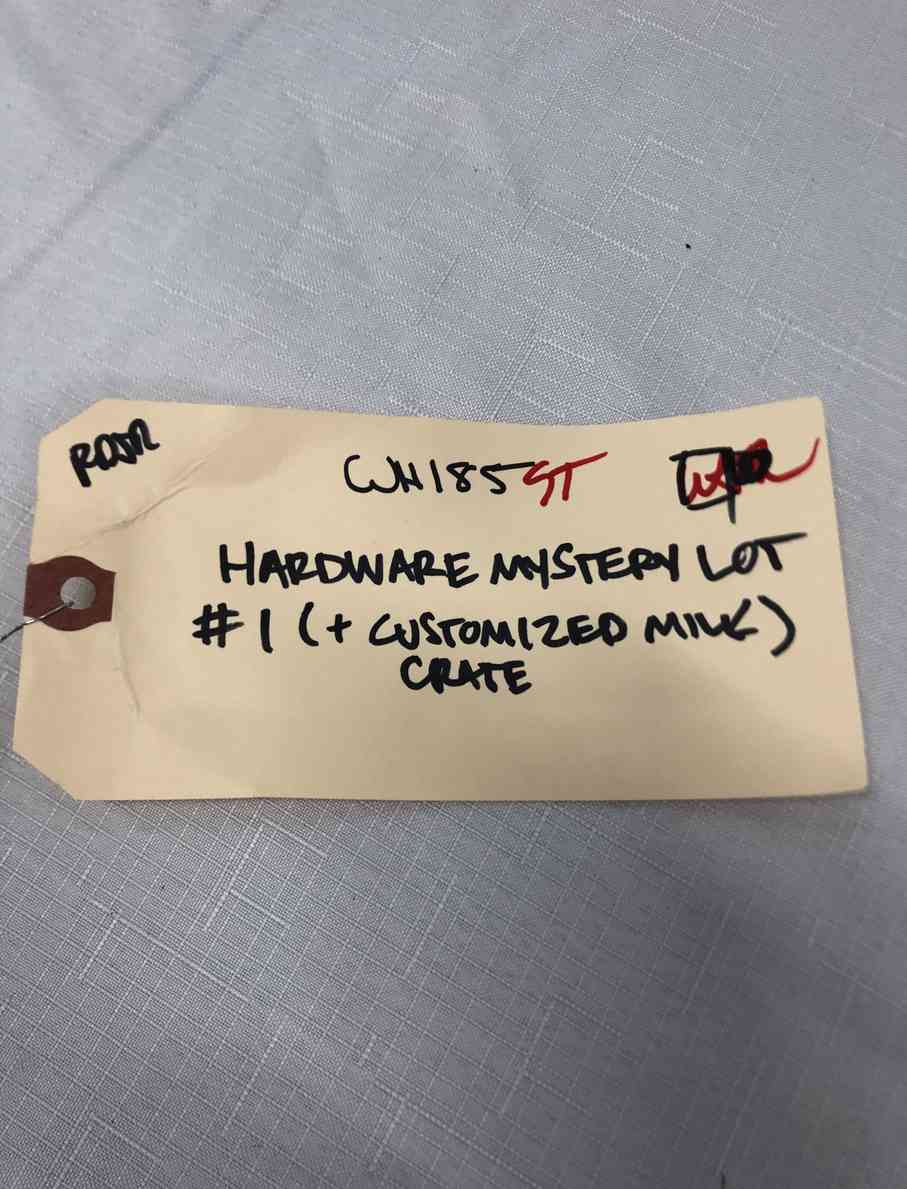 RDJR
WH185ST
HARDWARE MYSTERY LOT
#1 (+ CUSTOMIZED MILK)
CRATE